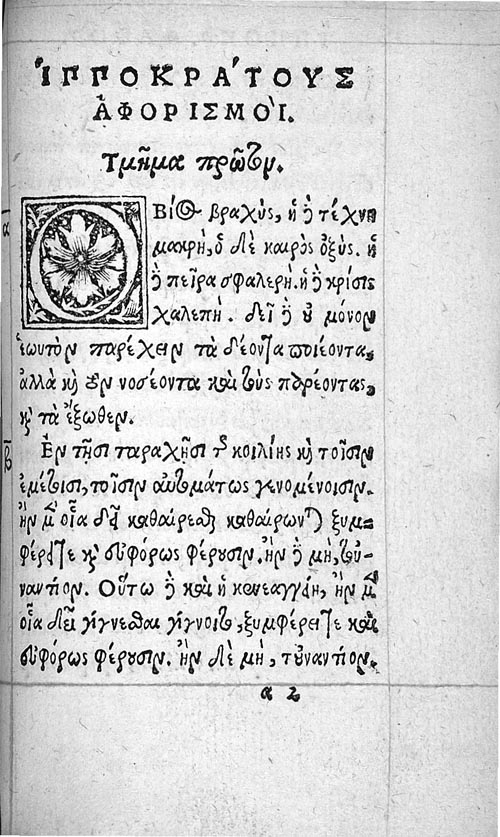 ἹΠΠΟΚΡΑ´ΤΟΥΣ
ἈΦΟΡΙΣΜΟῚ.
Τμῆμα πρῶτον.
Ο ΒΙος βραχὺς, ἡ δὲ τέχνη
μακρὴ, ὁ δὲ καιρὸς ὀξὺς. ἡ
δὲ πεῖρα σφαλερὴ. ἡ δὲ κρίσις
χαλεπὴ. δεῖ δὲ οὐ μόνον
ἑωυτὸν παρέχειν τὰ δέοντα ποιέοντα,
ἀλλὰ καὶ τὸν νοσέοντα καὶ τοὺς παρέοντας,
καὶ τὰ ἔξωθεν.
Ἐν τῇσι ταραχῇσι τῆς κοιλίης καὶ τοῖσιν
ἐμέτοισι, τοῖσιν αὐτομάτως γινομένοισιν.
ἢν μὲν οἷα δεῖ καθαίρεσθαι καθαίρωνται ξυμ-
φέρει τε καὶ εὐφόρως φέρουσιν. ἢν δὲ μὴ, τοὐ-
ναντίον. Οὕτω δὲ καὶ ἡ κενεαγγείη, ἢν μὲν
οἷα δεῖ γίγνεσθαι γίγνοιτο, ξυμφέρει τε καὶ
εὐφόρως φέρουσιν. ἢν δὲ μὴ, τοὐναντίον.
α 2
α
β